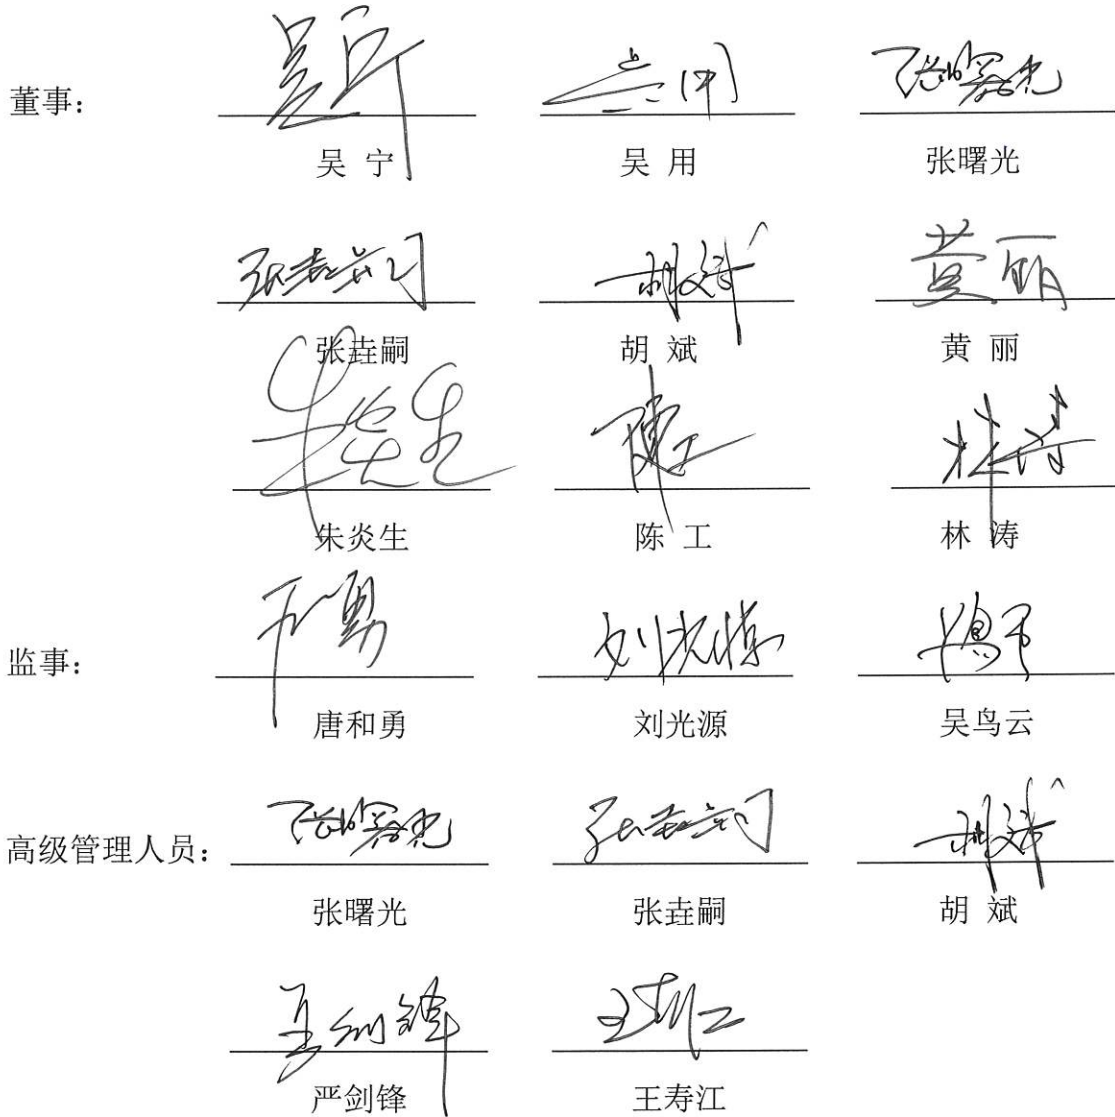 董事：
吴 宁 吴 用 张曙光
张垚嗣 胡 斌 黄 丽
朱炎生 陈 工 林 涛
监事：
唐和勇 刘光源 吴鸟云
高级管理人员：
张曙光 张垚嗣 胡 斌
严剑锋 王寿江